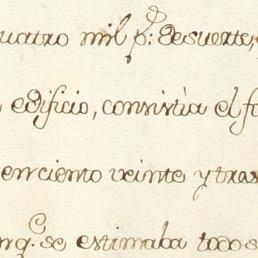 uatro mil p.s: desuerte,
edificio, consistia el fo
enciento veinte y tras
nrq.e se estimaba todo s